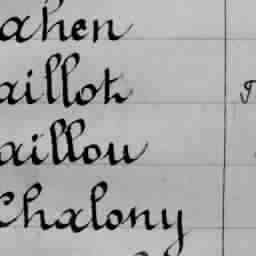 ahen
aillot
aillou
Chalony